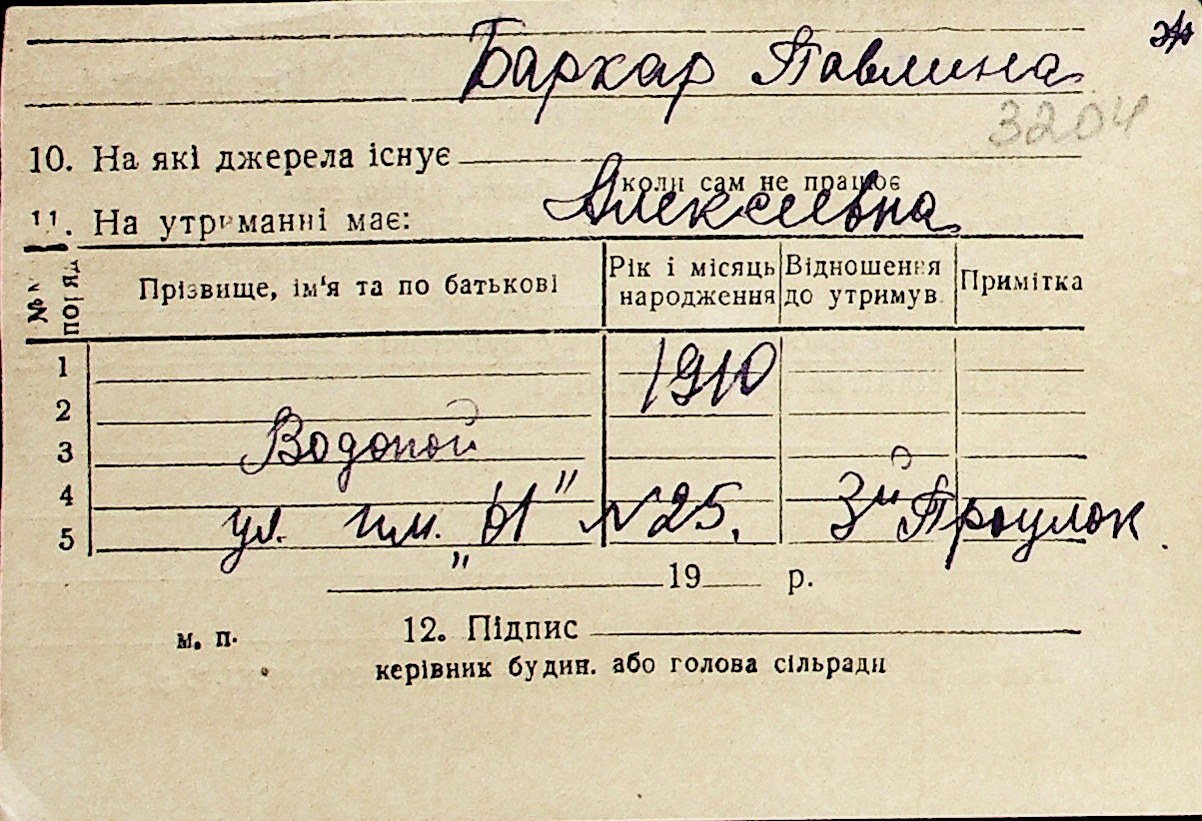 Бархар Павлина
3204
10. На які джерела існує
коли сам не працює
Алексеевна
11. На утриманні має:
№№ поряд Прізвище, ім'я та по батькові Рік і місяць народження Відношення до утримув. Примітка
1 1910
2
3 Водопой
4
5 ул. им. "Н" №25, 3й Проулок.
" 19 р.
м. п. 12. Підпис
керівник будин. або голова сільради